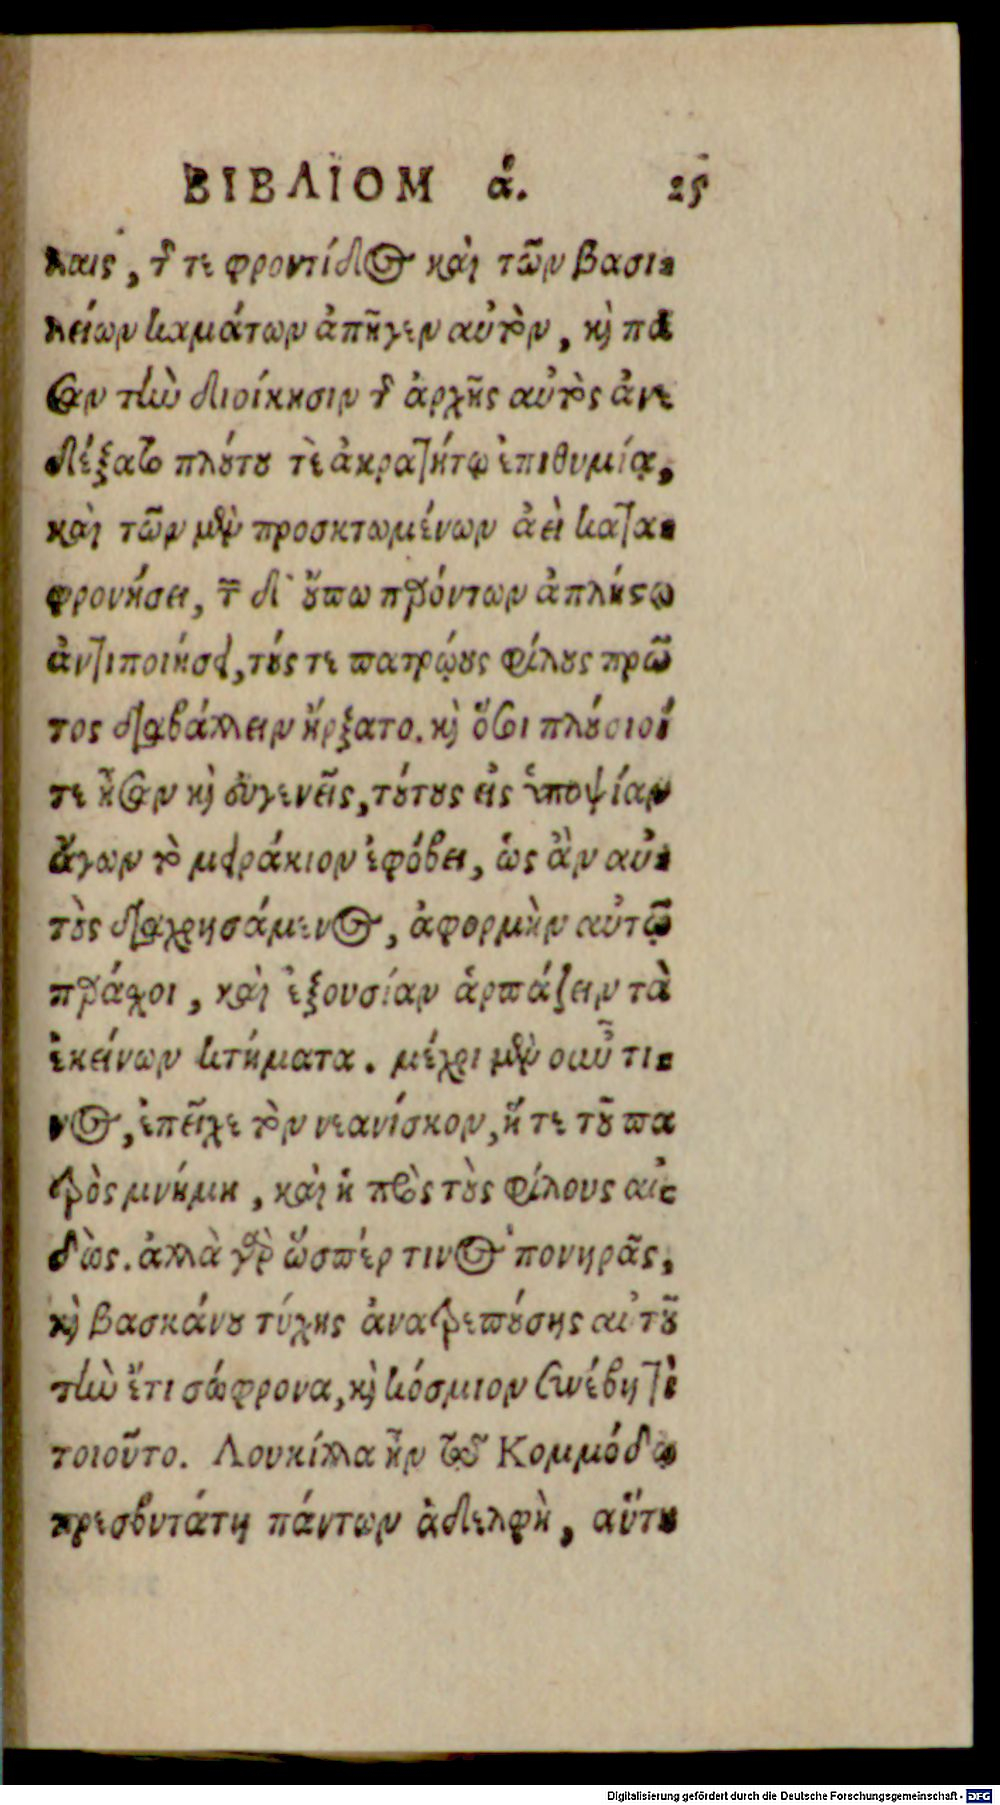 ΒΙΒΛΙΟΜ ά. 25
λαις, τ̃ τε φροντίδος καὶ τῶν βασι-
λείων καμάτων ἀπῆγεν αὐτὸν, κὶ πᾶ
σαν τὴν διοίκησιν τ̃ ἀρχῆς αὐτὸς ἀνε
δέξατο πλούτου τὲ ἀκρατήτῳ ἐπιθυμίᾳ,
καὶ τῶν μὲν προσκτωμένων ἀεὶ κατα-
φρονήσει, τ̃ δ' οὔπω παρόντων ἀπλήστῳ
ἀντιποιήσει, τούς τε πατρῴους φίλους πρῶ
τος διαβάλλειν ἤρξατο. κὶ ὅσοι πλούσιοί
τε ἦσαν κὶ εὐγενεῖς, τούτους εἰς ὑποψίαν
ἄγων τὸ μειράκιον ἐφόβει, ὡς ἂν αὐ-
τοὺς διαχρησάμενος, ἀφορμὴν αὐτῷ
παράσχοι, καὶ ἐξουσίαν ἁρπάζειν τὰ
ἐκείνων κτήματα. μέχρι μὲν οὖν τι-
νος, ἐπεῖχε τὸν νεανίσκον, ἥ τε τοῦ πα
τρὸς μνήμη, καὶ ἡ πρὸς τοὺς φίλους αἰ-
δώς. ἀλλὰ γὰρ ὥσπέρ τινος πονηρᾶς,
κὶ βασκάνου τύχης ἀνατρεπούσης αὐτοῦ
τὴν ἔτι σώφρονα, κὶ κόσμιον συνέβη τὶ
τοιοῦτο. Λουκίλλα ἦν τῷ Κομμόδῳ
πρεσβυτάτη πάντων ἀδελφὴ, αὕτη
Digitalisierung gefördert durch die Deutsche Forschungsgemeinschaft - DFG